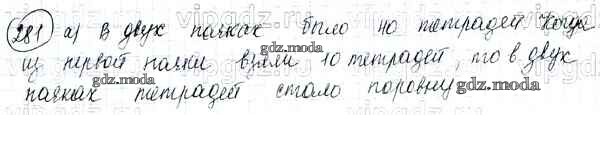 281 а) В двух пачках было 40 тетрадей. Когда
из первой пачки взяли 10 тетрадей, то в двух
пачках тетрадей стало поровну
gdz.moda
gdz.moda
gdz.moda
gdz.moda